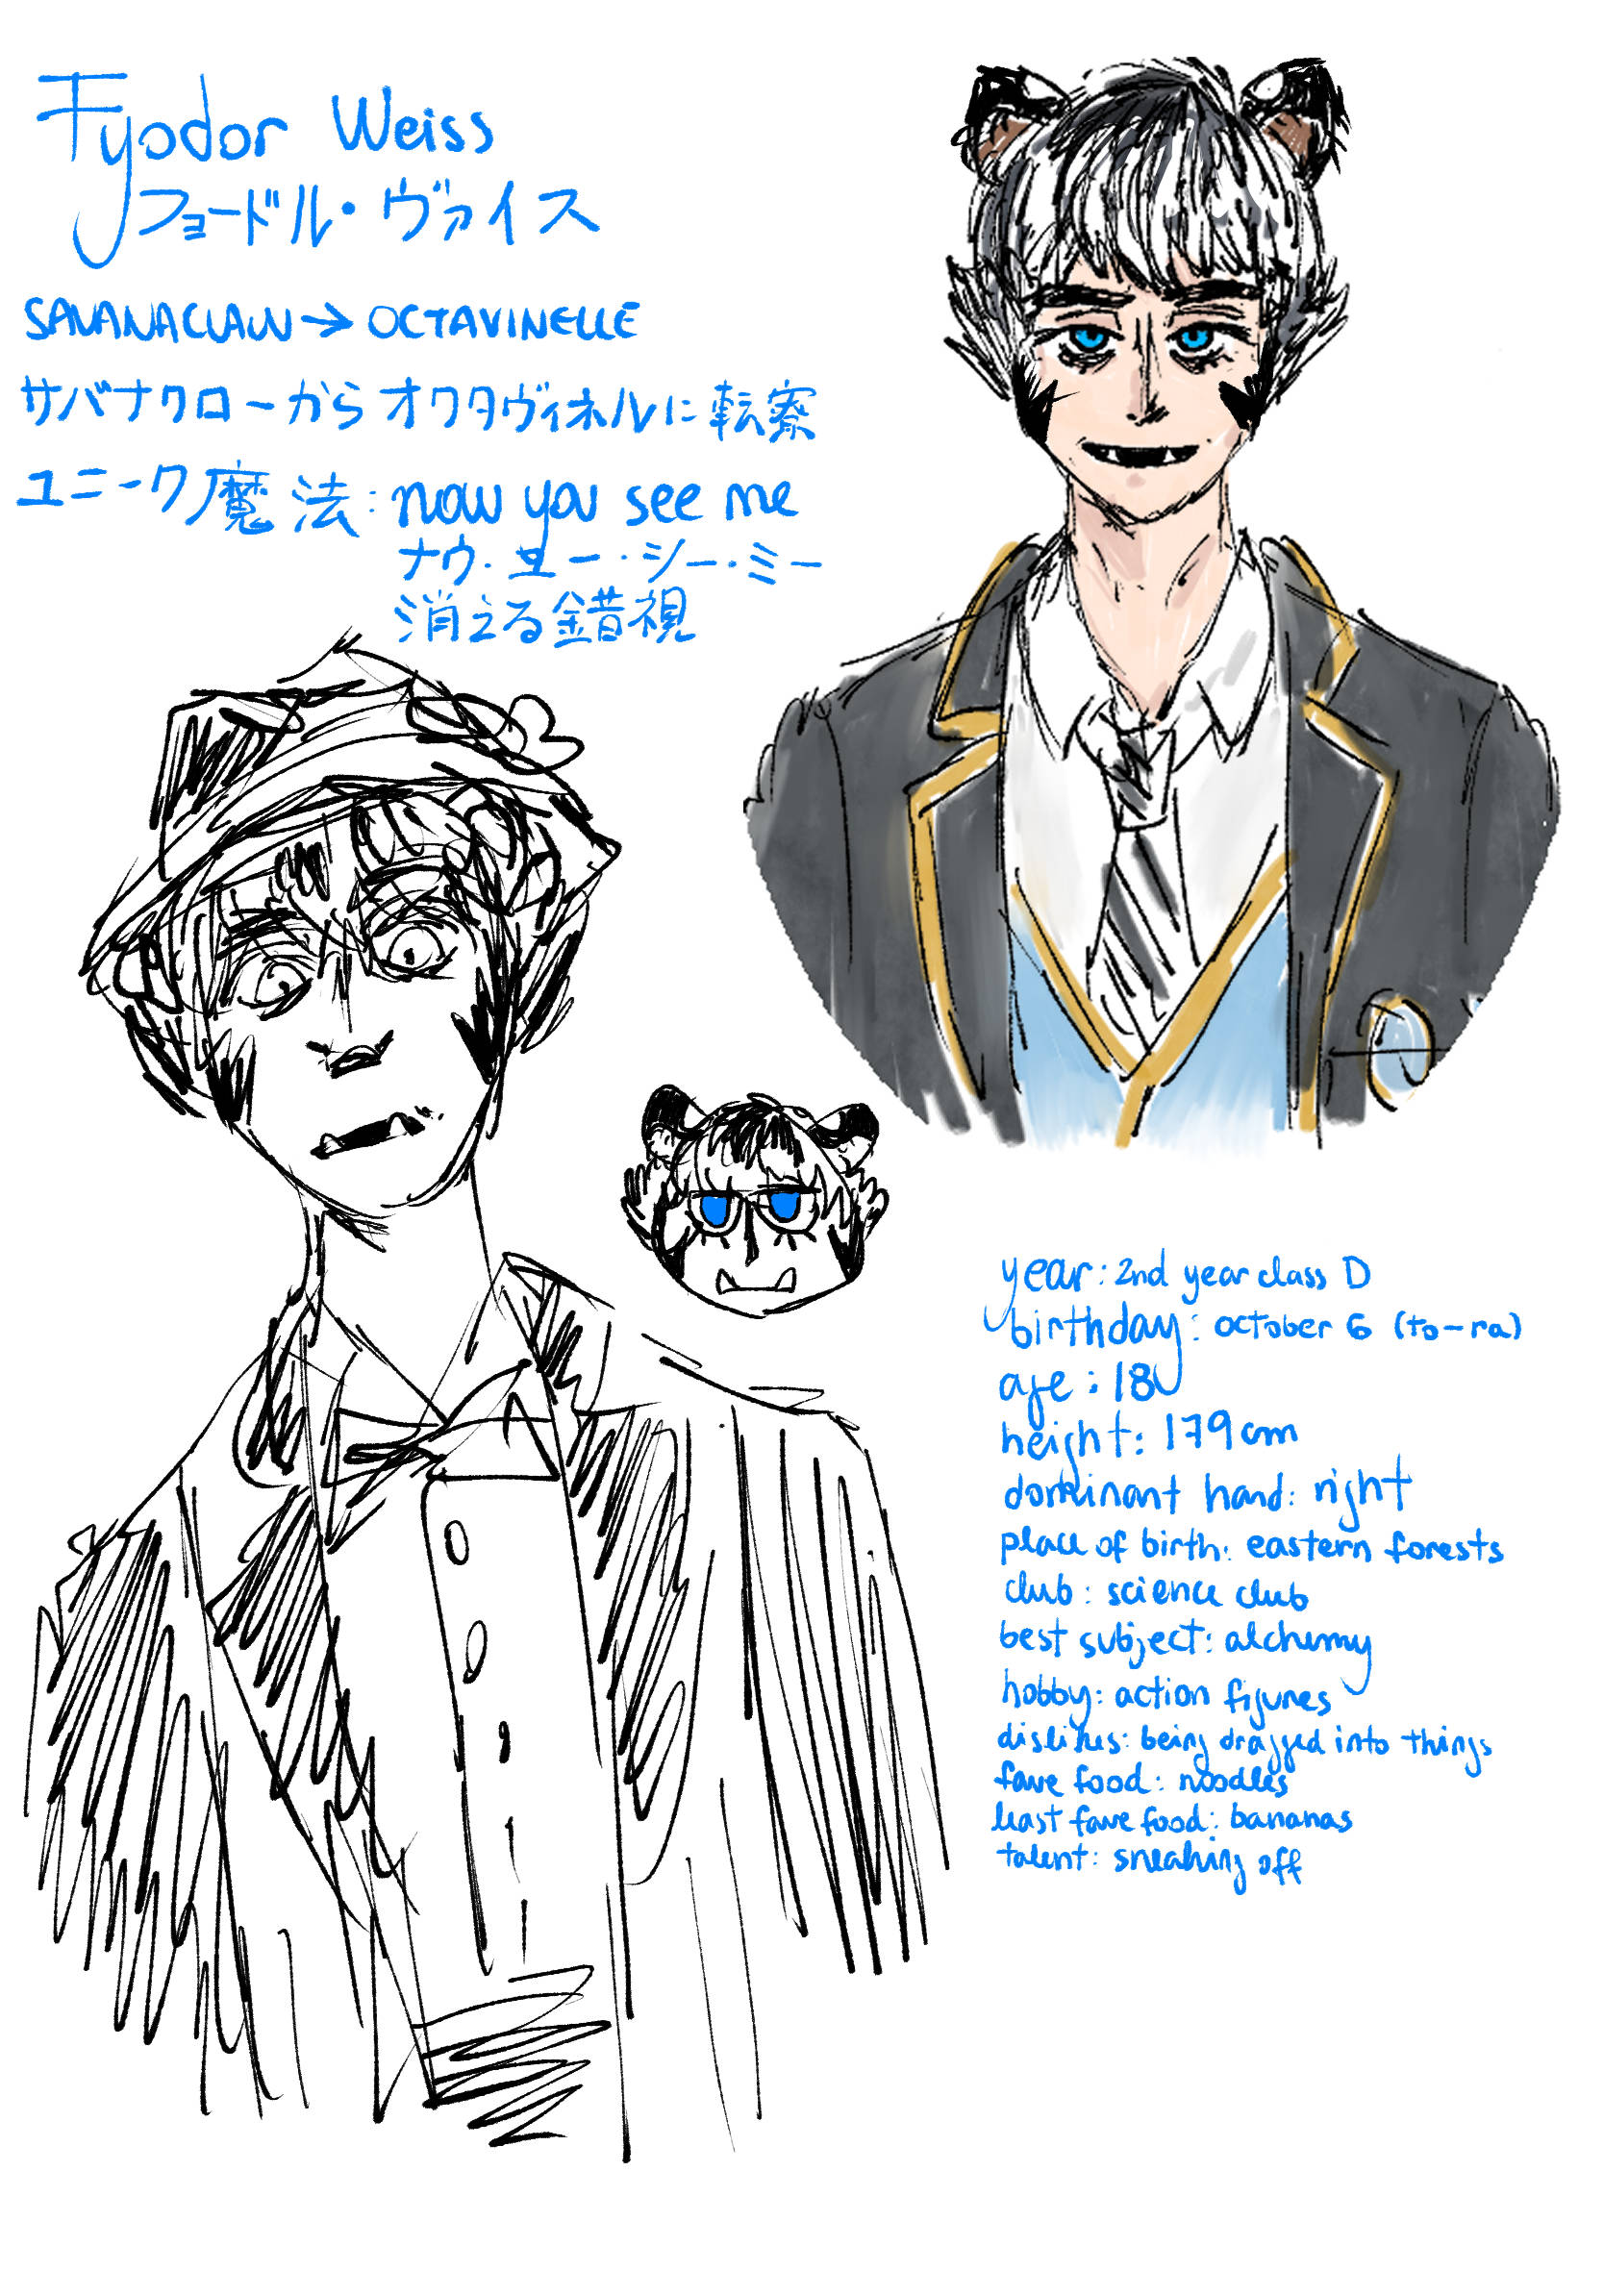 Fyodor Weiss
フョードル・ヴァイス
SAVANACLAW → OCTAVINELLE
サバナクローからオクタヴィネルに転寮
ユニーク魔法: now you see me
ナウ・ユー・シー・ミー
消える錯視
year: 2nd year class D
birthday: october 6 (to-ra)
age: 18
height: 179cm
dominant hand: right
place of birth: eastern forests
club: science club
best subject: alchemy
hobby: action figures
dislikes: being dragged into things
fave food: noodles
least fave food: bananas
talent: sneaking off